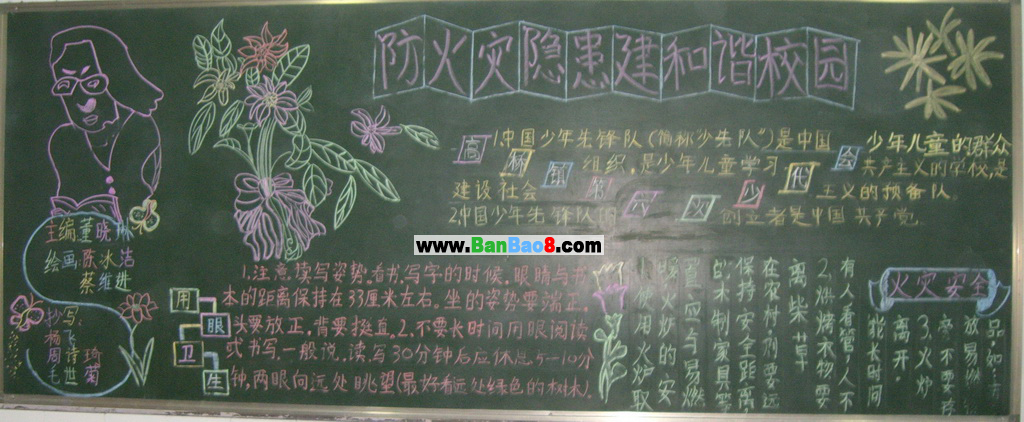 防火灾隐患建和谐校园
1.中国少年先锋队(简称"少先队")是中国少年儿童的群众
组织,是少年儿童学习共产主义的学校,是
建设社会主义的预备队。
2.中国少年先锋队的创立者是中国共产党。
www.BanBao8.com
主编:董晓
绘画:陈冰洁
蔡维进
抄写:
杨飞琦
周诗菊
毛世
用眼卫生
1.注意读写姿势。看书、写字的时候,眼睛与书
本的距离保持在33厘米左右。坐的姿势要端正。
头要放正,背要挺直。2.不要长时间用眼阅读
或书写。一般说,读写30分钟后应休息5-10分
钟,两眼向远处眺望(最好看远处绿色的树木)。
火灾安全
放易燃
3.火炉
离开。
有人看管,人不
2.烘烤木物要
离柴草
在农村,则要远
保持安全距离
的木制家具等
置应与易燃
暖火炉的安
使用火炉取